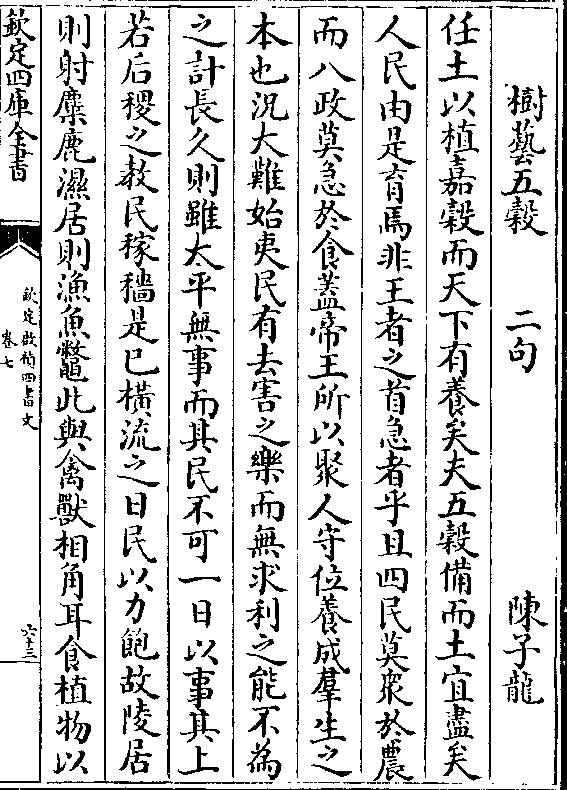 樹藝五穀　二句　陳子龍
任土以植嘉穀而天下有養矣夫五穀備而土宜盡矣
人民由是育焉非王者之首急者乎且四民莫衆於農
而八政莫急於食蓋帝王所以聚人守位養成羣生之
本也況大難始夷民有去害之樂而無求利之能不為
之計長久則雖太平無事而其民不可一日以事其上
若后稷之教民稼穡是已橫流之日民以力飽故陵居
則射麋鹿濕居則漁魚鼈此與禽獸相角耳食植物以
欽定四庫全書
欽定啟禎四書文
卷七
六十三